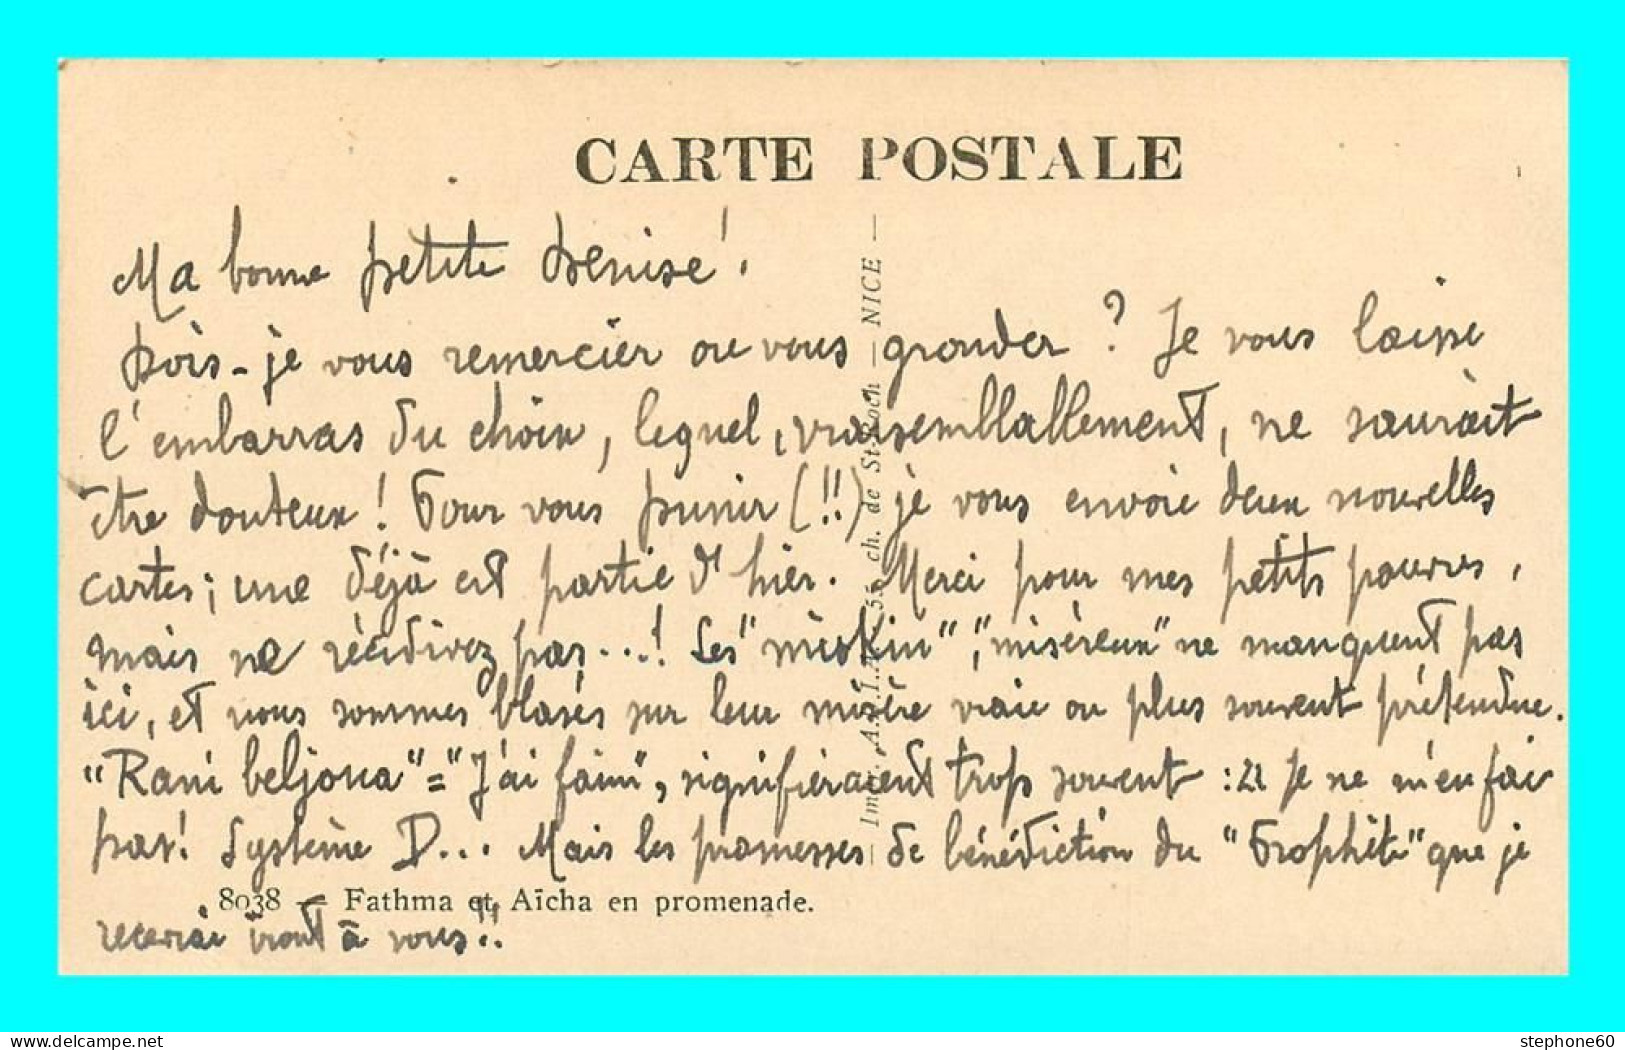 CARTE POSTALE
Ma bonne petite Denise !
Dois-je vous remercier ou vous gronder ? Je vous laisse
l'embarras du choix, lequel, vraisemblablement, ne saurait
être douteux ! Pour vous punir (!!) je vous envoie deux nouvelles
cartes ; une déjà est partie d'hier. Merci pour mes petits pauvres,
mais ne récidivez pas...! Les "meskin", "miséreux" ne manquent pas
ici, et nous sommes blasés sur leur misère vraie ou plus souvent prétendue.
"Rani beljoua" = "J'ai faim", signifieraient trop souvent : Je ne m'en fais
pas! Système D... Mais les promesses de bénédiction du "Prophète" que je
8038 — Fathma et Aïcha en promenade.
recevrai iront à vous!!
Imp. ch. de St-Roch — NICE —
stephone60